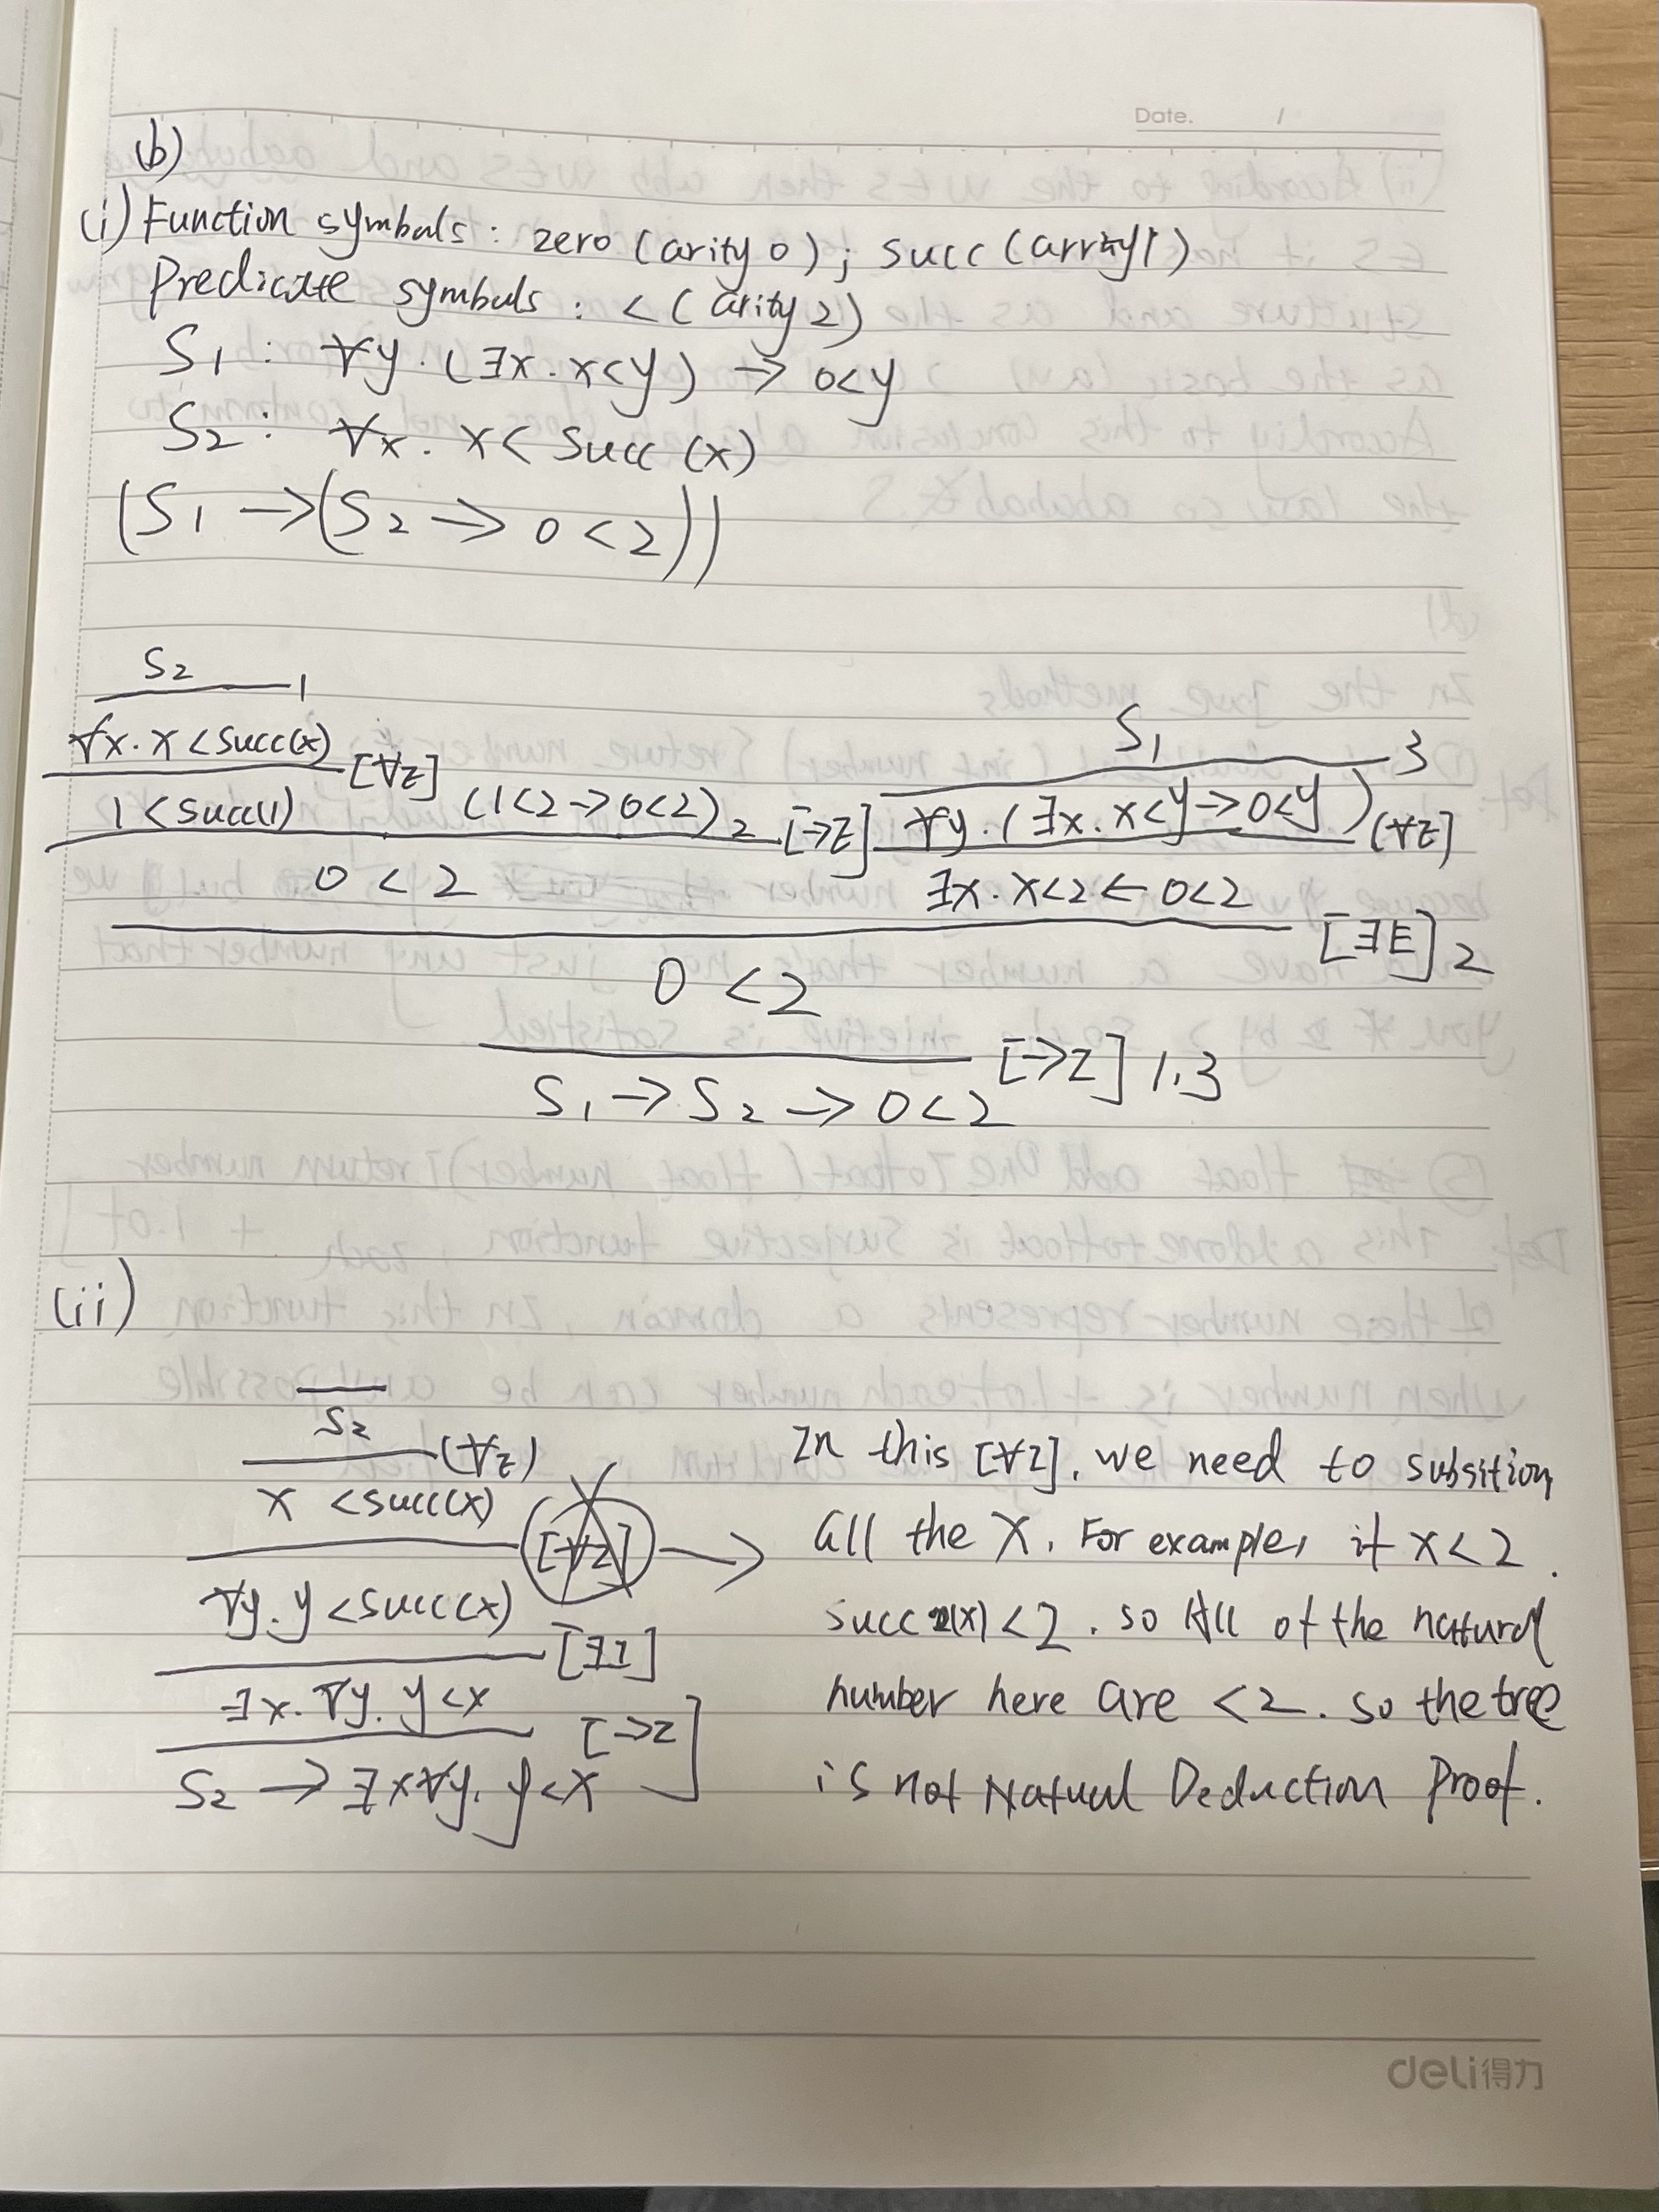 Date. /
(b)
(i) Function symbols : zero (arity 0) ; succ (arrity 1)
Predicate symbols : < (arity 2)
S1 : ∀y. (∃x. x<y) → 0<y
S2 : ∀x. x < succ (x)
(S1 → (S2 → 0<2))
S2
1
S1
3
∀x. x < succ(x) [∀z]
1 < succ(1) (1<2→0<2) 2 [→z]
∀y. (∃x. x<y→0<y) (∀z]
0 < 2
∃x. x<2 ← 0<2
[∃E] 2
0 < 2
[→z] 1,3
S1 → S2 → 0<2
(ii)
S2
(∀z)
x < succ(x)
[∀z] →
∀y. y < succ(x)
[∃I]
∃x. ∀y. y<x
[→z]
S2 → ∃x∀y. y<x
In this [∀z], we need to subsition
all the X. For example, if x<2.
succ(x) <2. so All of the natural
number here are <2. so the tree
is not Natual Deduction Proof.
deli得力